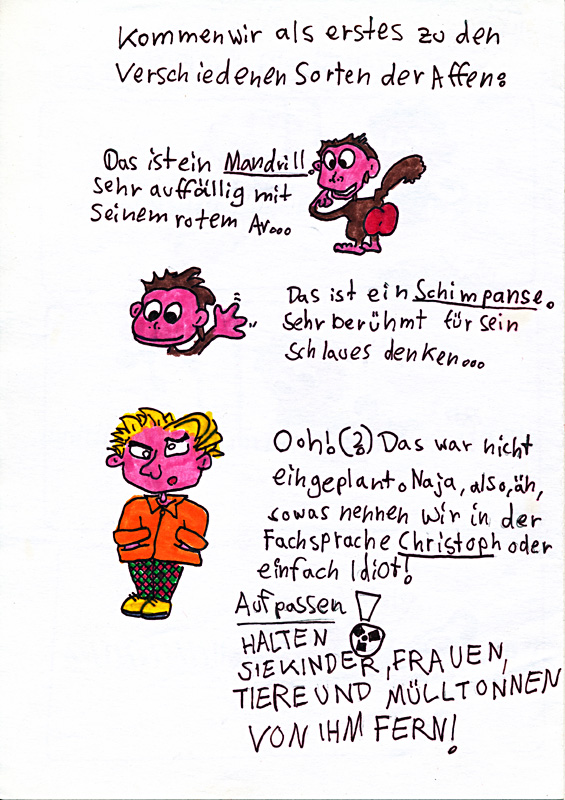 Kommen wir als erstes zu den
Verschiedenen Sorten der Affen:
Das ist ein Mandrill.
Sehr auffällig mit
Seinem rotem Ar...
Das ist ein Schimpanse.
Sehr berühmt für sein
Schlaues denken...
Ooh! (?) Das war nicht
eingeplant. Naja, also, äh,
sowas nennen wir in der
Fachsprache Christoph oder
einfach Idiot!
Aufpassen!
HALTEN
SIE KINDER, FRAUEN,
TIERE UND MÜLLTONNEN
VON IHM FERN!